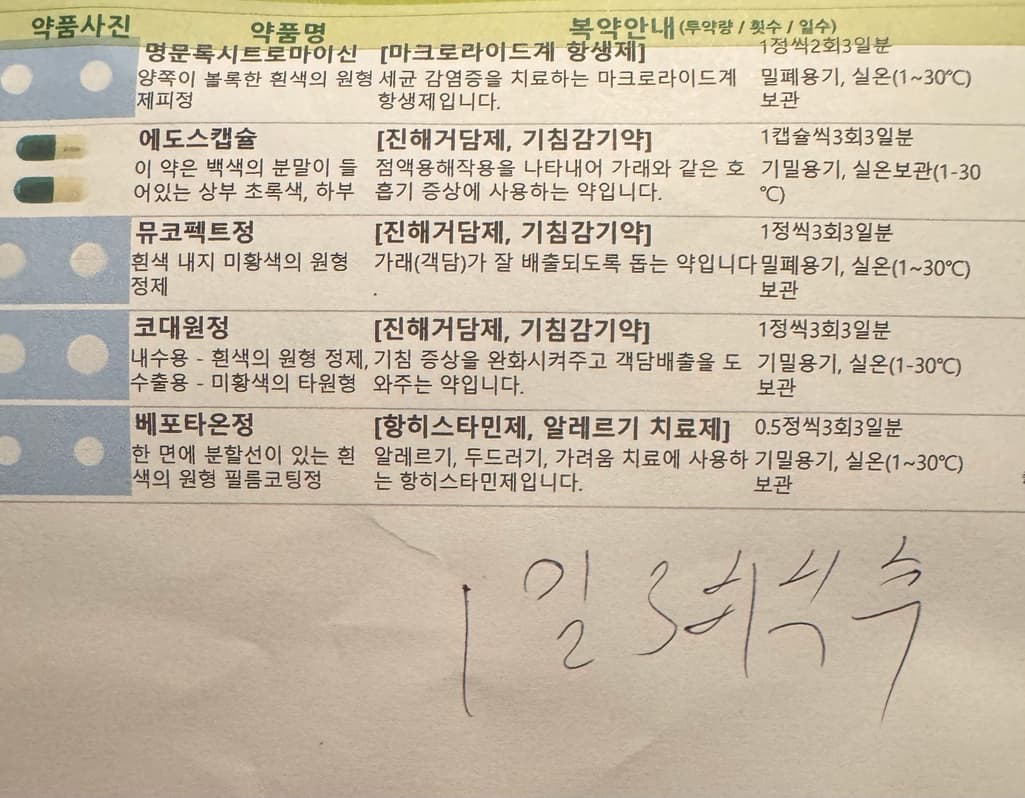 약품사진 약품명 복약안내(투약량 / 횟수 / 일수)
명문록시트로마이신 [마크로라이드계 항생제] 1정씩2회3일분
양쪽이 볼록한 흰색의 원형 세균 감염증을 치료하는 마크로라이드계 밀폐용기, 실온(1~30℃)
제피정 항생제입니다. 보관
에도스캡슐 [진해거담제, 기침감기약] 1캡슐씩3회3일분
이 약은 백색의 분말이 들 점액용해작용을 나타내어 가래와 같은 호 기밀용기, 실온보관(1-30
어있는 상부 초록색, 하부 흡기 증상에 사용하는 약입니다. ℃)
뮤코펙트정 [진해거담제, 기침감기약] 1정씩3회3일분
흰색 내지 미황색의 원형 가래(객담)가 잘 배출되도록 돕는 약입니다 밀폐용기, 실온(1~30℃)
정제 . 보관
코대원정 [진해거담제, 기침감기약] 1정씩3회3일분
내수용 - 흰색의 원형 정제, 기침 증상을 완화시켜주고 객담배출을 도 기밀용기, 실온(1-30℃)
수출용 - 미황색의 타원형 와주는 약입니다. 보관
베포타온정 [항히스타민제, 알레르기 치료제] 0.5정씩3회3일분
한 면에 분할선이 있는 흰 알레르기, 두드러기, 가려움 치료에 사용하 기밀용기, 실온(1~30℃)
색의 원형 필름코팅정 는 항히스타민제입니다. 보관
1일 3번 식후